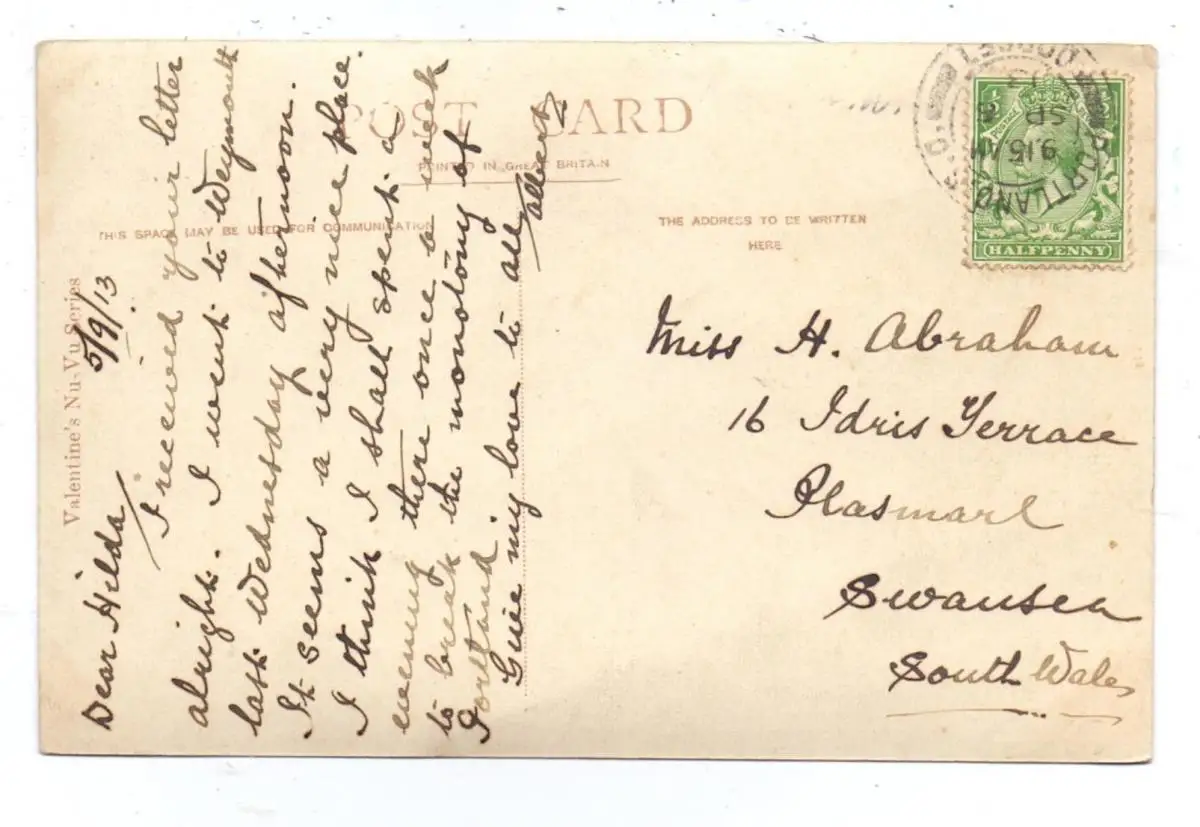 POST CARD
PRINTED IN GREAT BRITAIN
THIS SPACE MAY BE USED FOR COMMUNICATION
THE ADDRESS TO BE WRITTEN
HERE
Valentine's Nu-Vu Series
5/9/13
Dear Hilda
I received your letter
alright. I went to Weymouth
last Wednesday afternoon.
It seems a very nice place.
I think I shall spent a
evening there once a week
to break the monotony of
Portland
Give my love to all
Miss H. Abraham
16 Idris Terrace
Plasmarl
Swansea
South Wales
PORTLAND S.O. DORSET
9.15 AM
SP
13
POSTAGE
HALFPENNY